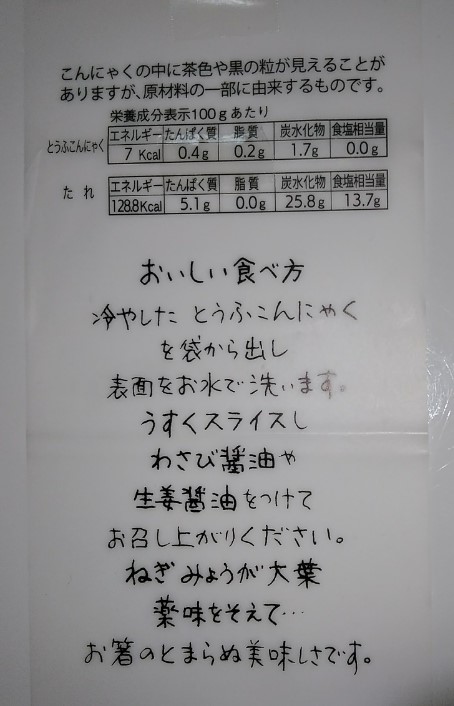 こんにゃくの中に茶色や黒の粒が見えることが
ありますが、原材料の一部に由来するものです。
栄養成分表示100gあたり
とうふこんにゃく エネルギー たんぱく質 脂質 炭水化物 食塩相当量
7 Kcal 0.4g 0.2g 1.7g 0.0g
たれ エネルギー たんぱく質 脂質 炭水化物 食塩相当量
128.8Kcal 5.1g 0.0g 25.8g 13.7g
おいしい食べ方
冷やした とうふこんにゃく
を袋から出し
表面をお水で洗います。
うすくスライスし
わさび醤油や
生姜醤油をつけて
お召し上がりください。
ねぎみょうが大葉
薬味をそえて…
お箸のとまらぬ美味しさです。